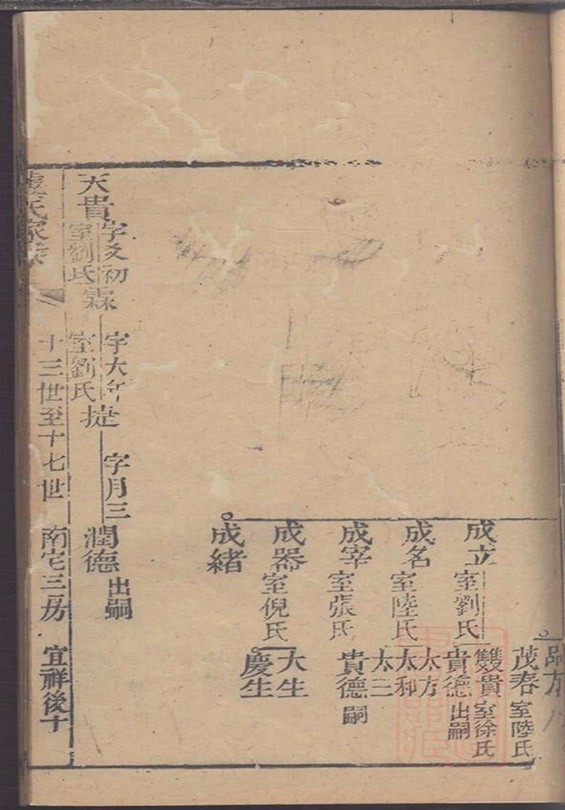 茂春 室陸氏
成立 室劉氏
雙貴 室徐氏
貴德 出嗣
成名 室陸氏
大方
太和
太三
成宰 室張氏
貴德 嗣
成器 室倪氏
大生
慶生
成緒
天貴 字文初 室劉氏
霖 字大年 室劉氏
捷 字月三
潤德 出嗣
氏家
十三世至十七世
南宅三房
宜祥後十